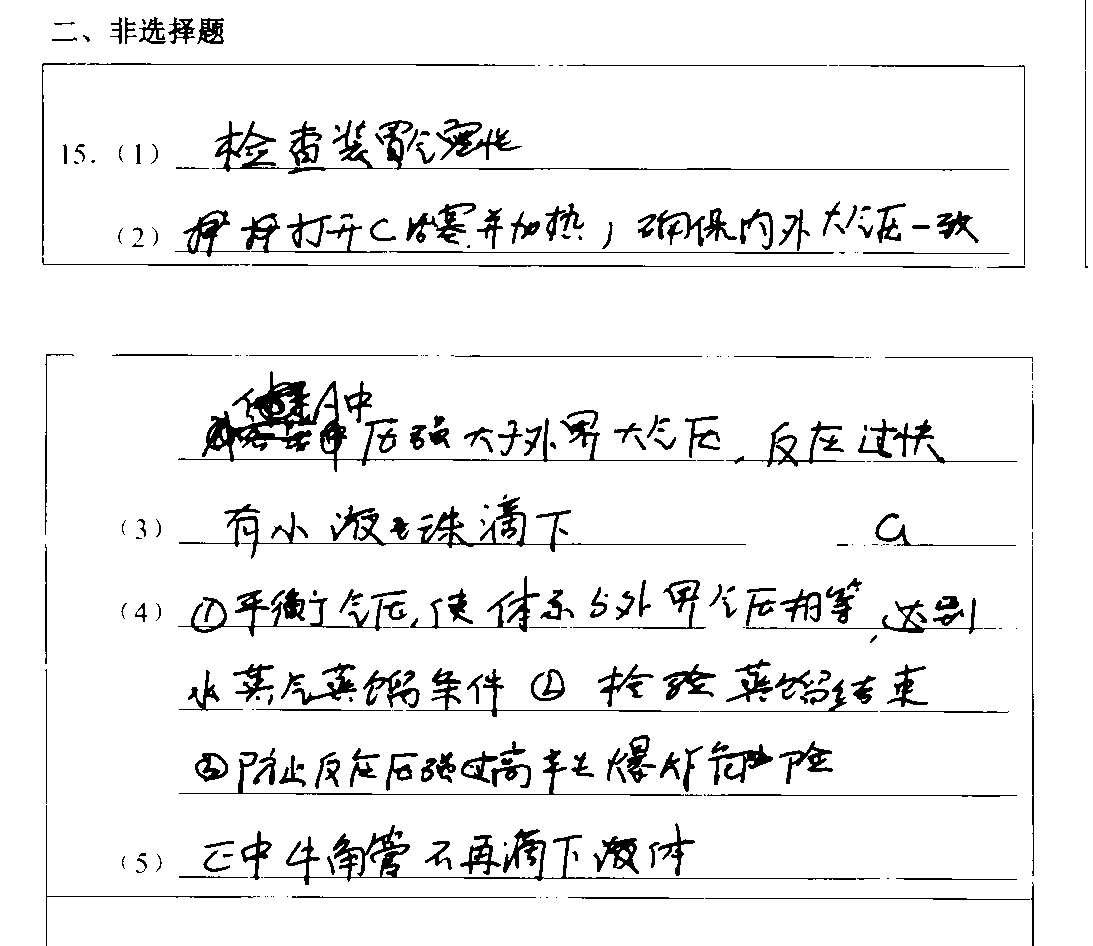 二、非选择题
15.（1） 检查装置气密性
（2） 打开C活塞并加热，确保内外大气压一致
A中压强大于外界大气压，反应过快
（3） 有小液珠滴下 a
（4） ①平衡气压，使体系与外界气压相等，达到
水蒸气蒸馏条件 ② 检验蒸馏结束
③防止反应压强过高产生爆炸危险
（5） E中牛角管不再滴下液体